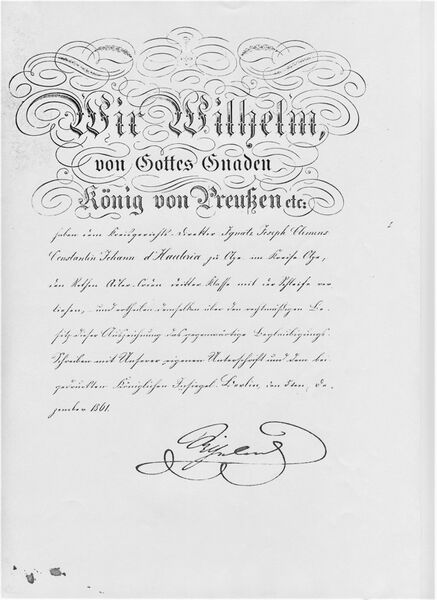 Wir Wilhelm,
von Gottes Gnaden
König von Preußen etc:
haben dem Kreisgerichts-Direktor Ignatz Joseph Clemens
Constantin Johann d'Hauterive zu im Kreise
den Rothen Adler-Orden dritter Klasse mit der Schleife ver
liehen, und ertheilen demselben über den rechtmäßigen Be
sitz dieser Auszeichnung das gegenwärtige Beglaubigungs
Schreiben mit Unserer eigenen Unterschrift und dem bei
gedruckten Königlichen Insiegel. Berlin, den De
zember 1861.
Wilhelm